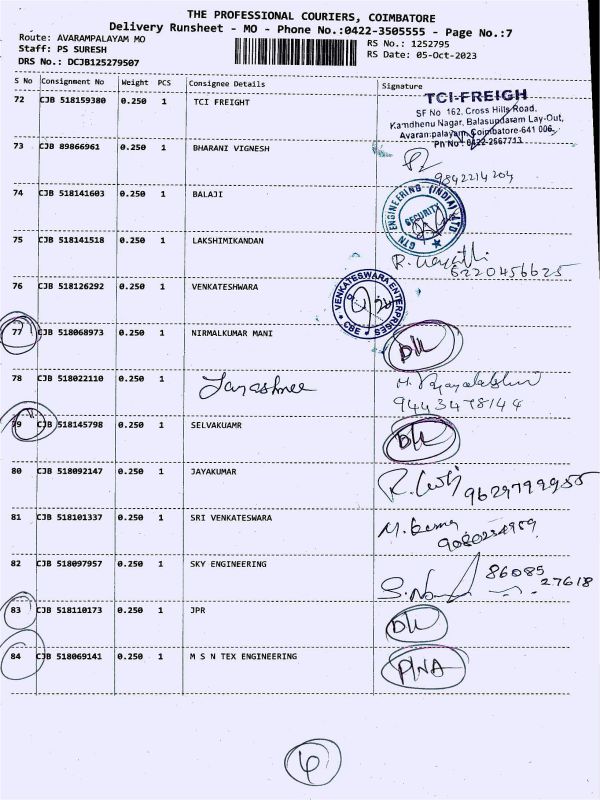 THE PROFESSIONAL COURIERS, COIMBATORE
Delivery Runsheet - MO - Phone No.:0422-3505555 - Page No.:7
Route: AVARAMPALAYAM MO
RS No.: 1252795
Staff: PS SURESH
RS Date: 05-Oct-2023
DRS No.: DCJB125279507
S No Consignment No Weight PCS Consignee Details Signature
72 CJB 518159380 0.250 1 TCI FREIGHT
TCI-FREIGH
SF No 162, Cross Hills Road,
Kamdhenu Nagar, Balasundaram Lay-Out,
Avarampalayam, Coimbatore-641 006.
Ph No: 0422-2667713
73 CJB 89866961 0.250 1 BHARANI VIGNESH
9842214204
74 CJB 518141603 0.250 1 BALAJI
GTN ENGINEERING (INDIA) LTD
SECURITY
75 CJB 518141518 0.250 1 LAKSHIMIKANDAN
6220456625
76 CJB 518126292 0.250 1 VENKATESHWARA
VENKATESWARA ENTERPRISES
CBE
77 CJB 518068973 0.250 1 NIRMALKUMAR MANI
DL
78 CJB 518022110 0.250 1 Jayashree
9443478144
79 CJB 518145798 0.250 1 SELVAKUAMR
DL
80 CJB 518092147 0.250 1 JAYAKUMAR
9629799955
81 CJB 518101337 0.250 1 SRI VENKATESWARA
9080234959
82 CJB 518097957 0.250 1 SKY ENGINEERING
86085
27618
83 CJB 518110173 0.250 1 JPR
DL
84 CJB 518069141 0.250 1 M S N TEX ENGINEERING
PNA